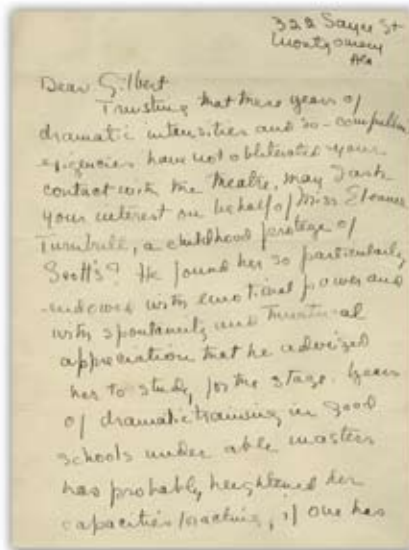 322 Sayre St
Montgomery
Ala
Dear Gilbert
Trusting that these years of
dramatic intensities and so-compellin
exigencies have not obliterated your
contact with the theatre, may I ask
your interest on behalf of Miss Eleanor
Turnbull, a childhood protege of
Scott's? He found her so particularly
endowed with emotional power and
with spontanity and
appreciation that he advised
her to study for the stage. Years
of dramatic training in good
schools under able masters
has probably heightened her
capacities, if one has